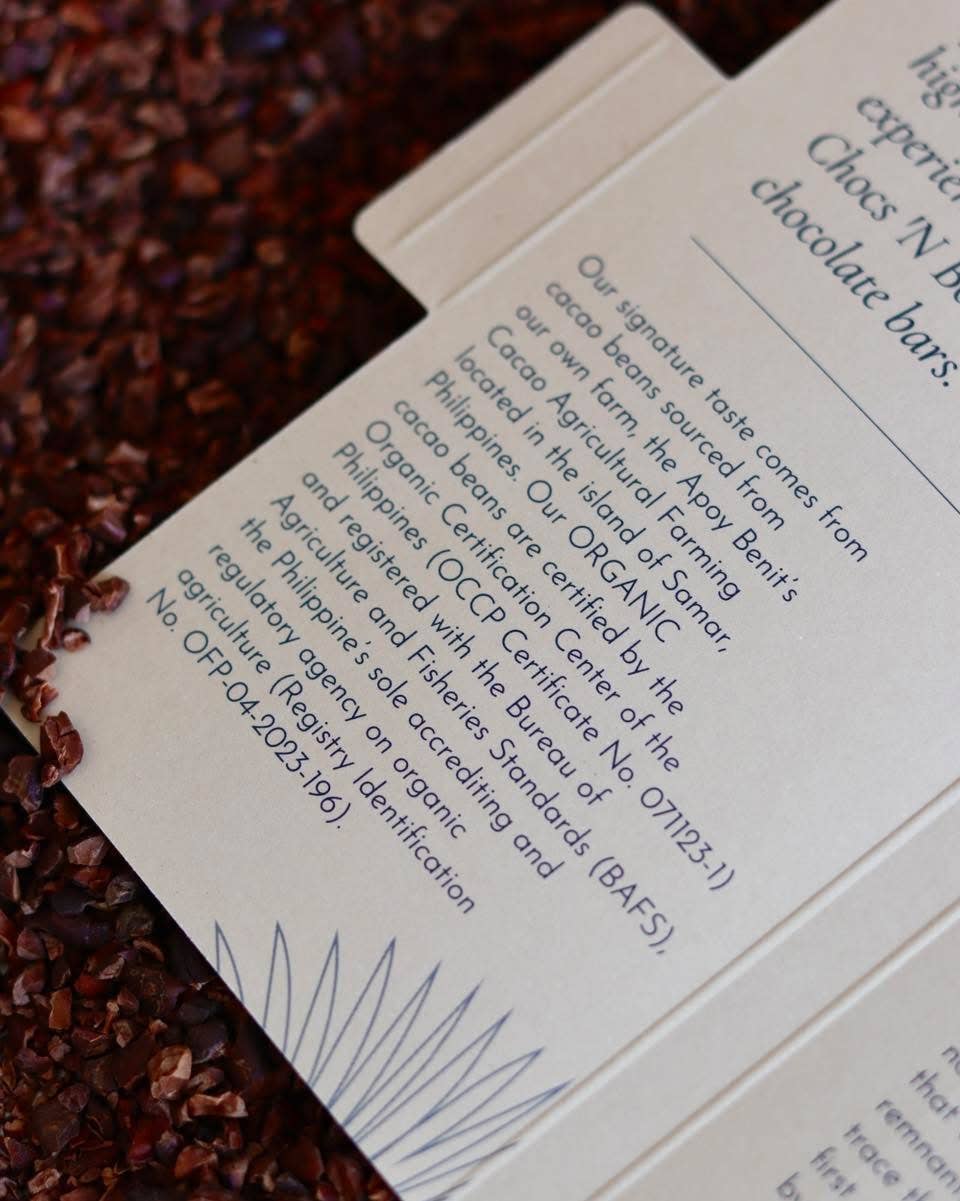 Chocs 'N
chocolate bars.
Our signature taste comes from
cacao beans sourced from
our own farm, the Apoy Benit's
Cacao Agricultural Farming
located in the island of Samar,
Philippines. Our ORGANIC
cacao beans are certified by the
Organic Certification Center of the
Philippines (OCCP Certificate No. 071123-1)
and registered with the Bureau of
Agriculture and Fisheries Standards (BAFS),
the Philippine's sole accrediting and
regulatory agency on organic
agriculture (Registry Identification
No. OFP-04-2023-196).
that
trace
first